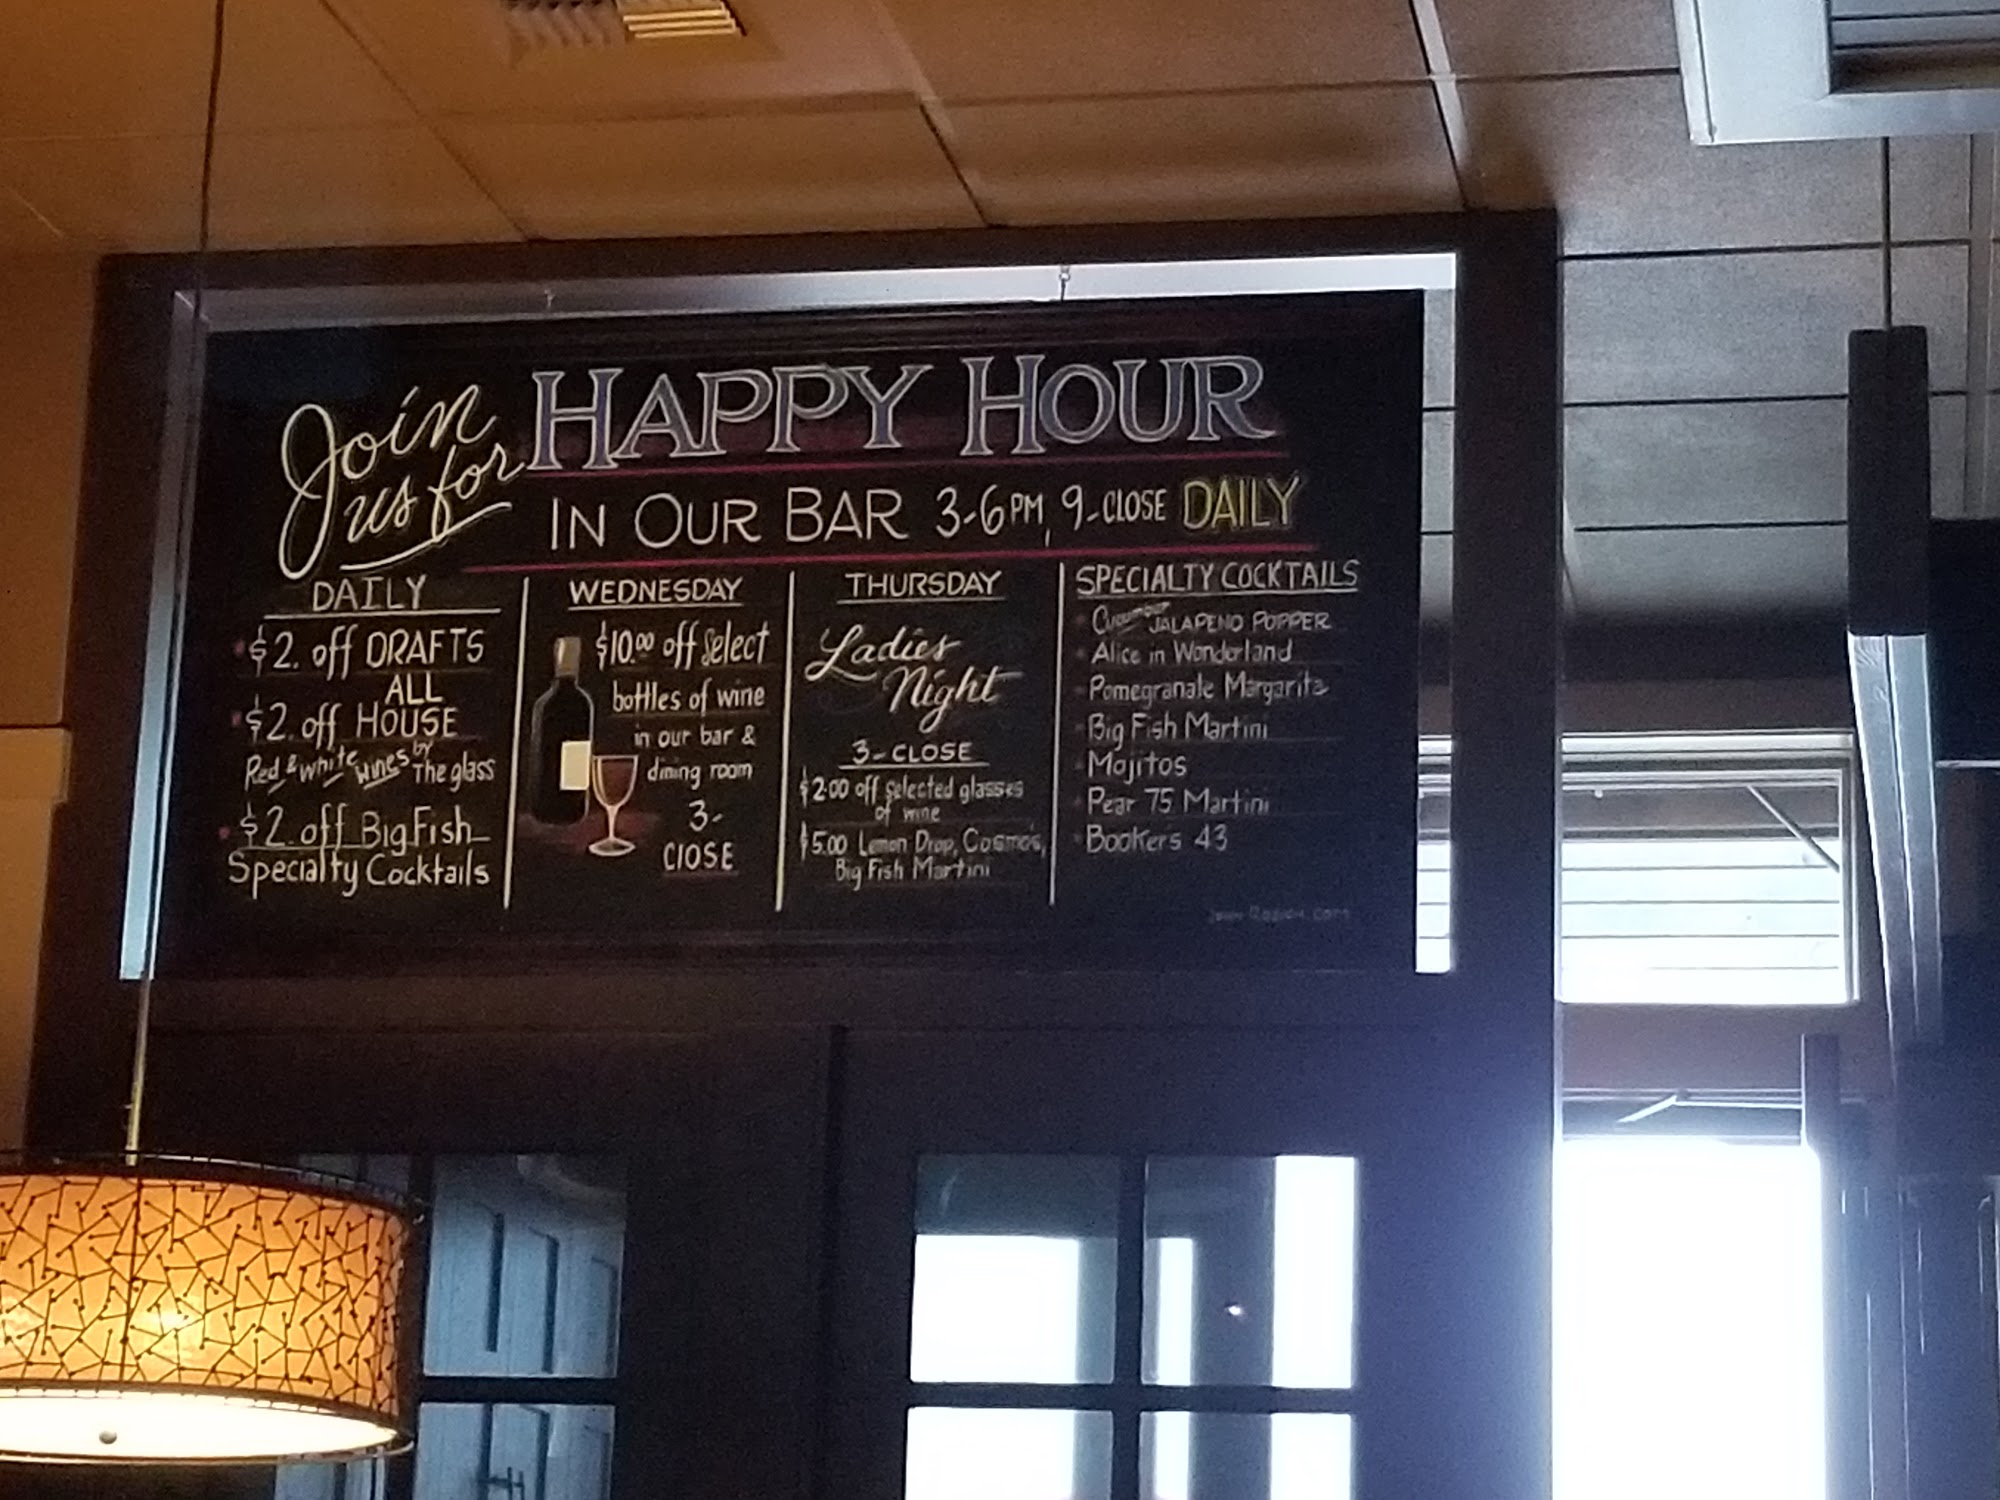 Join us for
HAPPY HOUR
IN OUR BAR 3-6PM, 9-CLOSE DAILY
DAILY
$2. off DRAFTS
$2. off ALL HOUSE
Red & white wines by The glass
$2. off Big Fish
Specialty Cocktails
WEDNESDAY
$10.00 off select
bottles of wine
in our bar &
dining room
3-
ClOSE
THURSDAY
Ladies
Night
3-CLOSE
$2.00 off selected glasses
of wine
$5.00 Lemon Drop, Cosmo's,
Big Fish Martini
SPECIALTY COCKTAILS
Cucumber JALAPENO POPPER
Alice in Wonderland
Pomegranate Margarita
Big Fish Martini
Mojitos
Pear 75 Martini
Bookers 43